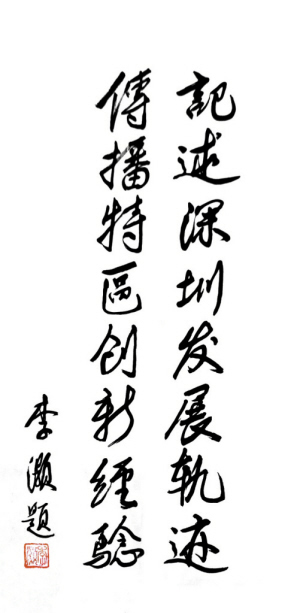 記述深圳发展轨迹
傳播特區创新经驗
李灏題